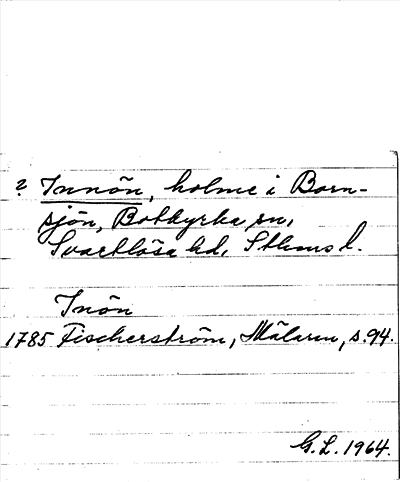 ? Innön, holme i Born-
sjön, Botkyrka sn,
Svartlösa hd, Sthms l.
Inön
1785 Fischerström, Mälaren, s. 94.
G.L. 1964.